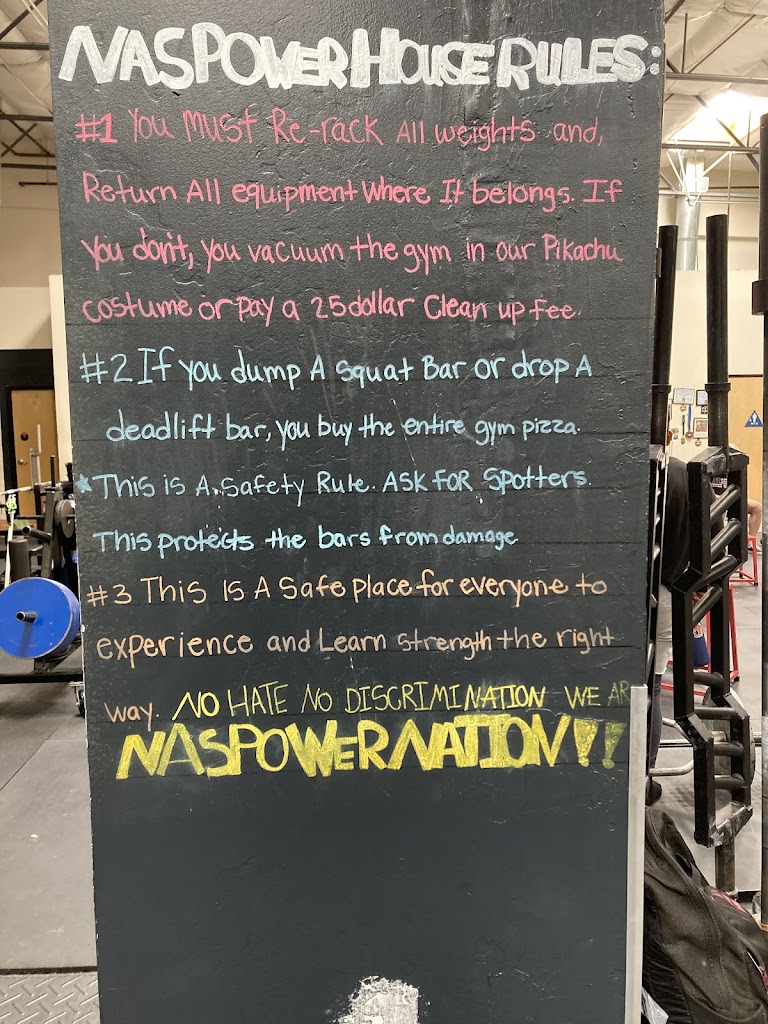 NASPOWER HOUSE RULES:
#1 You Must Re-rack All weights and,
Return All equipment Where It belongs. If
You don't, you vacuum the gym in our Pikachu
costume or pay a 25 dollar Clean up fee.
#2 If you dump A Squat Bar or drop A
deadlift bar, you buy the entire gym pizza.
*This is A Safety Rule. ASK FOR Spotters.
This protects the bars from damage
#3 This Is A Safe place for everyone to
experience and Learn strength the right
way. NO HATE NO DISCRIMINATION WE AR
NASPOWERNATION!!